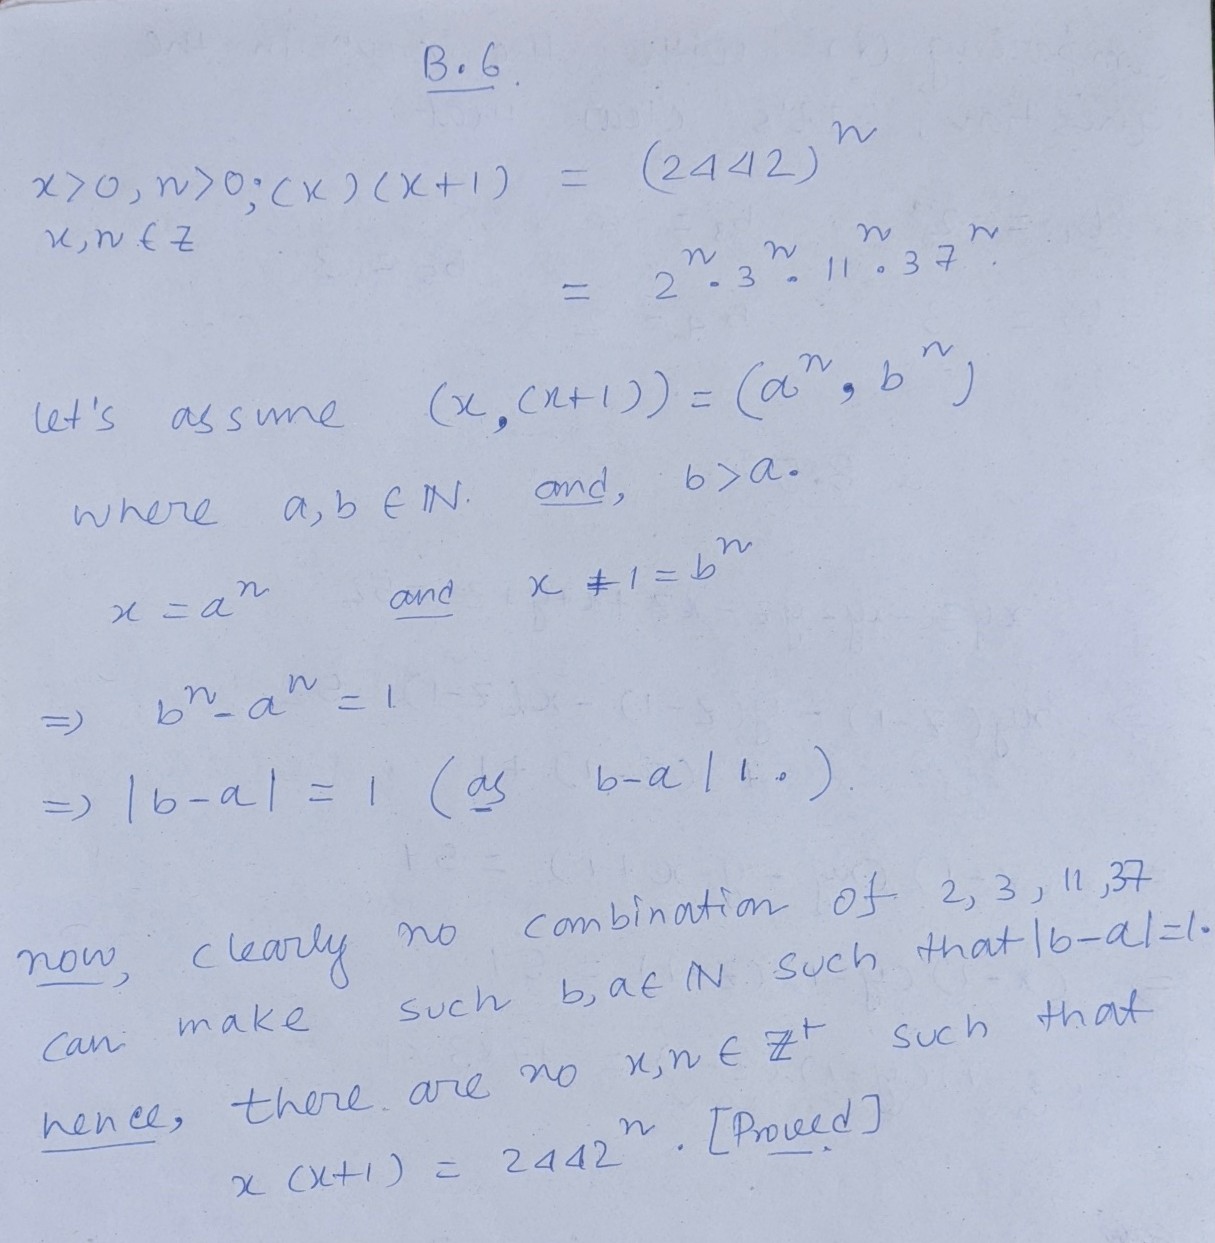 B.6.
x>0, n>0; (x)(x+1) = (2442)^n
x, n ∈ Z
= 2^n · 3^n · 11^n · 37^n.
let's assume (x, (x+1)) = (a^n, b^n)
where a, b ∈ ℕ. and, b>a.
x = a^n and x + 1 = b^n
=> b^n - a^n = 1
=> |b-a| = 1 (as b-a | 1.)
now, clearly no combination of 2, 3, 11, 37
can make such b, a ∈ ℕ such that |b-a|=1.
hence, there are no x, n ∈ ℤ^+ such that
x (x+1) = 2442^n. [Proved]